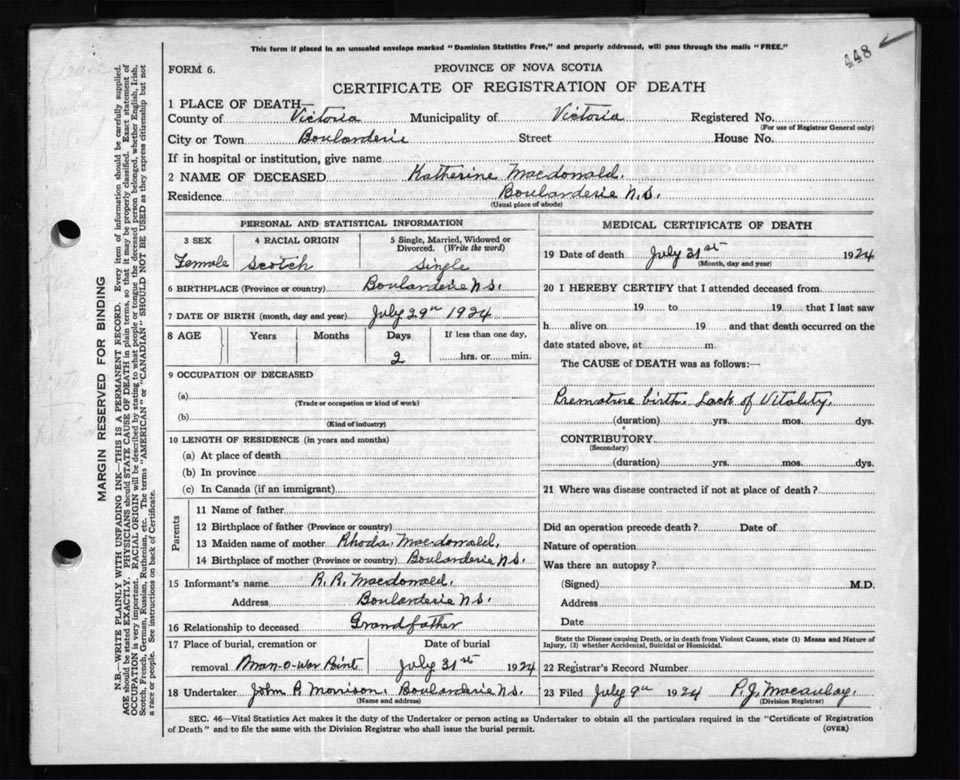 This form if placed in an unsealed envelope marked "Dominion Statistics Free," and properly addressed, will pass through the mails "FREE."
448
FORM 6.
PROVINCE OF NOVA SCOTIA
CERTIFICATE OF REGISTRATION OF DEATH
1 PLACE OF DEATH—
County of Victoria Municipality of Victoria Registered No.
(For use of Registrar General only)
City or Town Boularderie Street House No.
If in hospital or institution, give name
2 NAME OF DECEASED Katherine Macdonald.
Residence Boularderie N.S.
(Usual place of abode)
PERSONAL AND STATISTICAL INFORMATION
3 SEX 4 RACIAL ORIGIN 5 Single, Married, Widowed or Divorced. (Write the word)
Female Scotch Single
6 BIRTHPLACE (Province or country) Boularderie N.S.
7 DATE OF BIRTH (month, day and year) July 29th 1924
8 AGE Years Months Days If less than one day,
2 hrs. or min.
9 OCCUPATION OF DECEASED
(a)
(Trade or occupation or kind of work)
(b)
(Kind of industry)
10 LENGTH OF RESIDENCE (in years and months)
(a) At place of death
(b) In province
(c) In Canada (if an immigrant)
Parents
11 Name of father
12 Birthplace of father (Province or country)
13 Maiden name of mother Rhoda Macdonald.
14 Birthplace of mother (Province or country) Boularderie N.S.
15 Informant's name R. R. Macdonald.
Address Boularderie N.S.
16 Relationship to deceased Grandfather
17 Place of burial, cremation or Date of burial
removal Man-O-War Point July 31st 1924
18 Undertaker John P. Morrison. Boularderie N.S.
(Name and address)
MEDICAL CERTIFICATE OF DEATH
19 Date of death July 31st 1924
(Month, day and year)
20 I HEREBY CERTIFY that I attended deceased from
19 to 19 that I last saw
h alive on 19 and that death occurred on
date stated above, at m.
The CAUSE of DEATH was as follows:—
Premature birth. Lack of Vitality.
(duration) yrs. mos. dys.
CONTRIBUTORY
(Secondary)
(duration) yrs. mos. dys.
21 Where was disease contracted if not at place of death?
Did an operation precede death? Date of
Nature of operation
Was there an autopsy?
(Signed) M.D.
Address
Date
State the Disease causing Death, or in death from Violent Causes, state (1) Means and Nature of
Injury, (2) whether Accidental, Suicidal or Homicidal.
22 Registrar's Record Number
23 Filed July 9th 1924 P. J. Macaulay.
(Division Registrar)
SEC. 46—Vital Statistics Act makes it the duty of the Undertaker or person acting as Undertaker to obtain all the particulars required in the "Certificate of Registration
of Death" and to file the same with the Division Registrar who shall issue the burial permit.
(OVER)
MARGIN RESERVED FOR BINDING
N.B.—WRITE PLAINLY WITH UNFADING INK—THIS IS A PERMANENT RECORD. Every item of information should be carefully supplied.
AGE should be stated EXACTLY. PHYSICIANS should STATE CAUSE OF DEATH in plain terms, so that it may be properly classified. Exact statement of
OCCUPATION is very important. RACIAL ORIGIN will be described by stating to what people or tongue the deceased person belonged, whether English, Irish,
Scotch, French, German, Russian, Ruthenian, etc. The terms "AMERICAN" or "CANADIAN" SHOULD NOT BE USED as they express citizenship but not
a race or people. See instructions on back of Certificate.